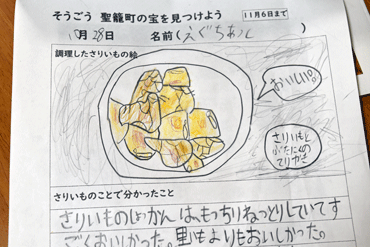 そうごう 聖籠町の宝を見つけよう
11月6日まで
10月28日 名前(えぐちあん)
調理したさりいもの絵
おいしい。
さりいもと
ぶたにくの
てりやき
さりいものことで分かったこと
さりいものしょかんは、もっちりねっとりしていてす
ごくおいしかった。里いもよりもおいしかった。